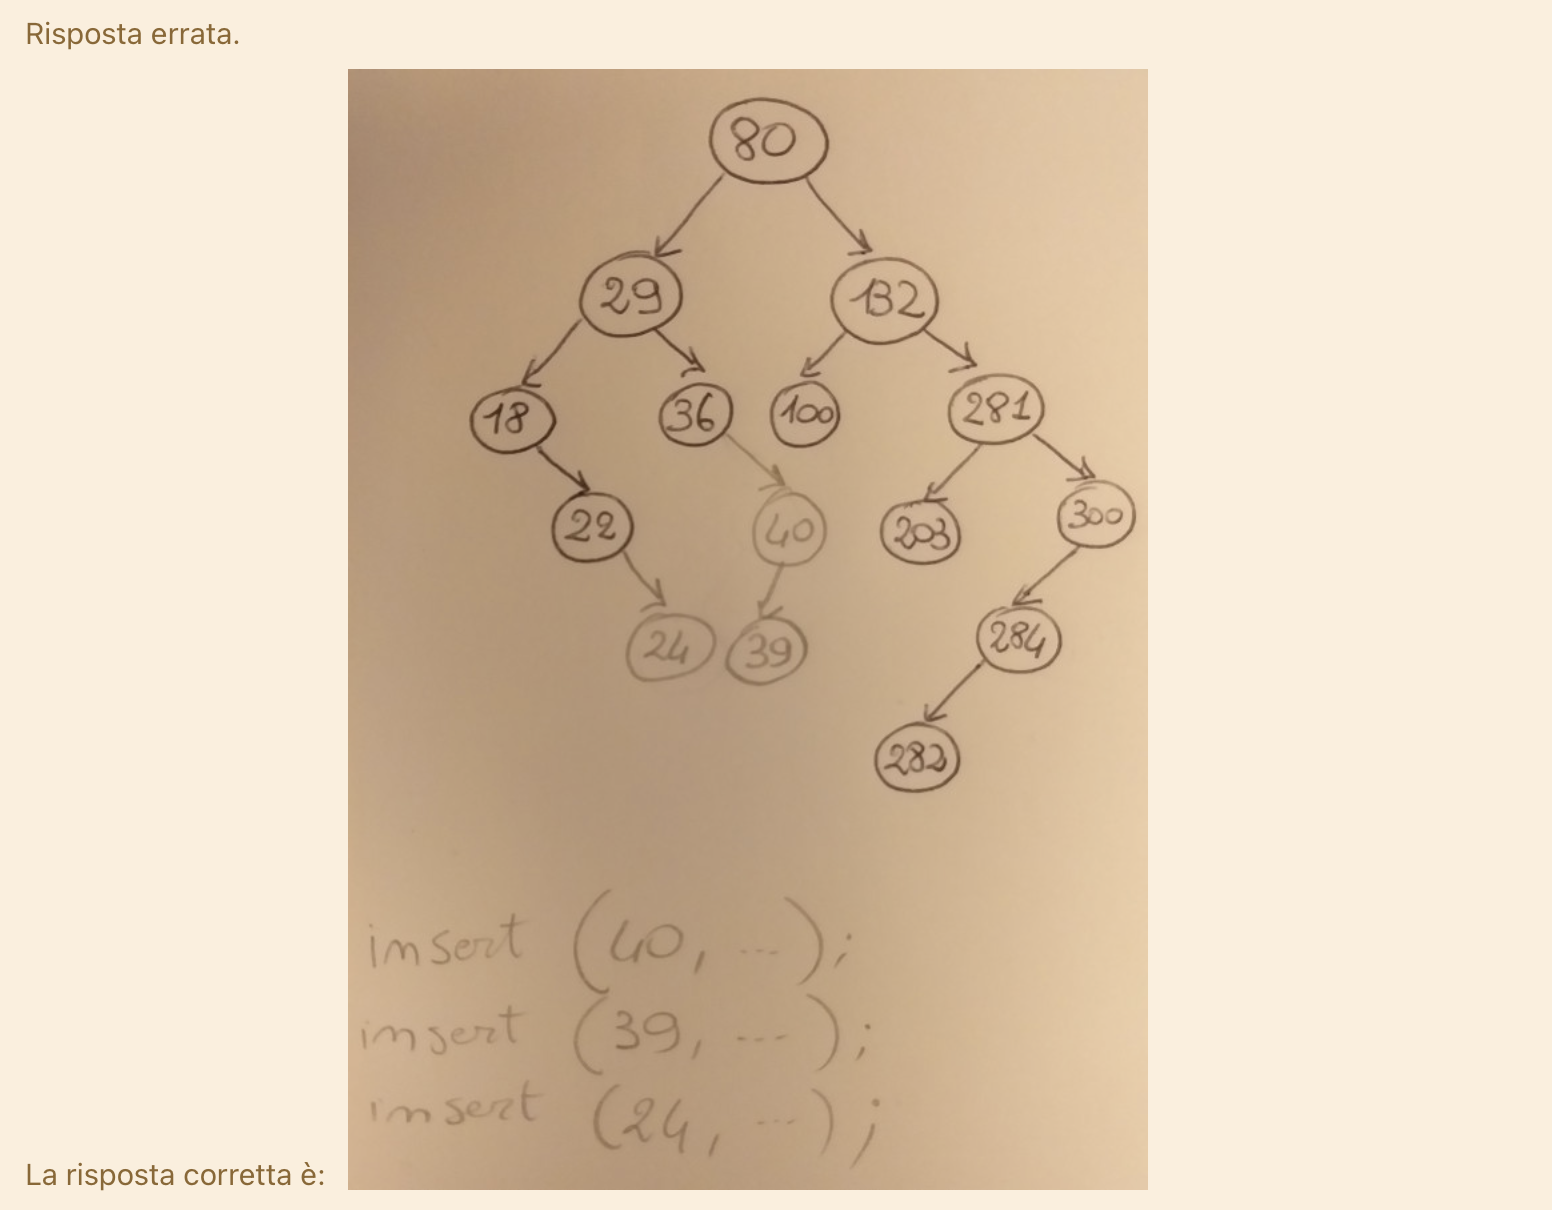 Risposta errata.
80
29 132
18 36 100 281
22 40 203 300
24 39 284
282
insert (40, ...);
insert (39, ...);
insert (24, ...);
La risposta corretta è: